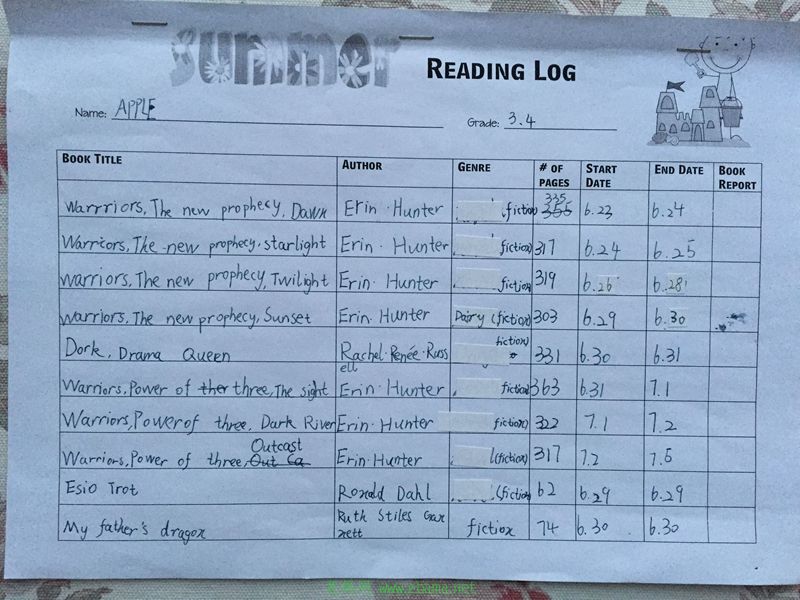 summer
READING LOG
Name: APPLE Grade: 3.4
BOOK TITLE AUTHOR GENRE # OF PAGES START DATE END DATE BOOK REPORT
Warrriors, The new prophecy, Dawn Erin · Hunter fiction 335 355 6.23 6.24
Warriors, The new prophecy, starlight Erin · Hunter fiction) 317 6.24 6.25
warriors, The new prophecy, Twilight Erin · Hunter fiction) 319 6.26 6.28
warriors, The new prophecy, Sunset Erin · Hunter Dairy (fiction) 303 6.29 6.30
Dork, Drama Queen Rachel · Renée · Russell fiction) 331 6.30 6.31
Warriors, Power of ther three, The sight Erin · Hunter fiction) 363 6.31 7.1
Warriors, Power of three, Dark River Erin · Hunter fiction) 322 7.1 7.2
Warriors, Power of three, Out Ca Outcast Erin · Hunter (fiction) 317 7.2 7.5
Esio Trot Ronald Dahl (fiction) 62 6.29 6.29
My father's dragon Ruth Stiles Gannett fiction 74 6.30 6.30